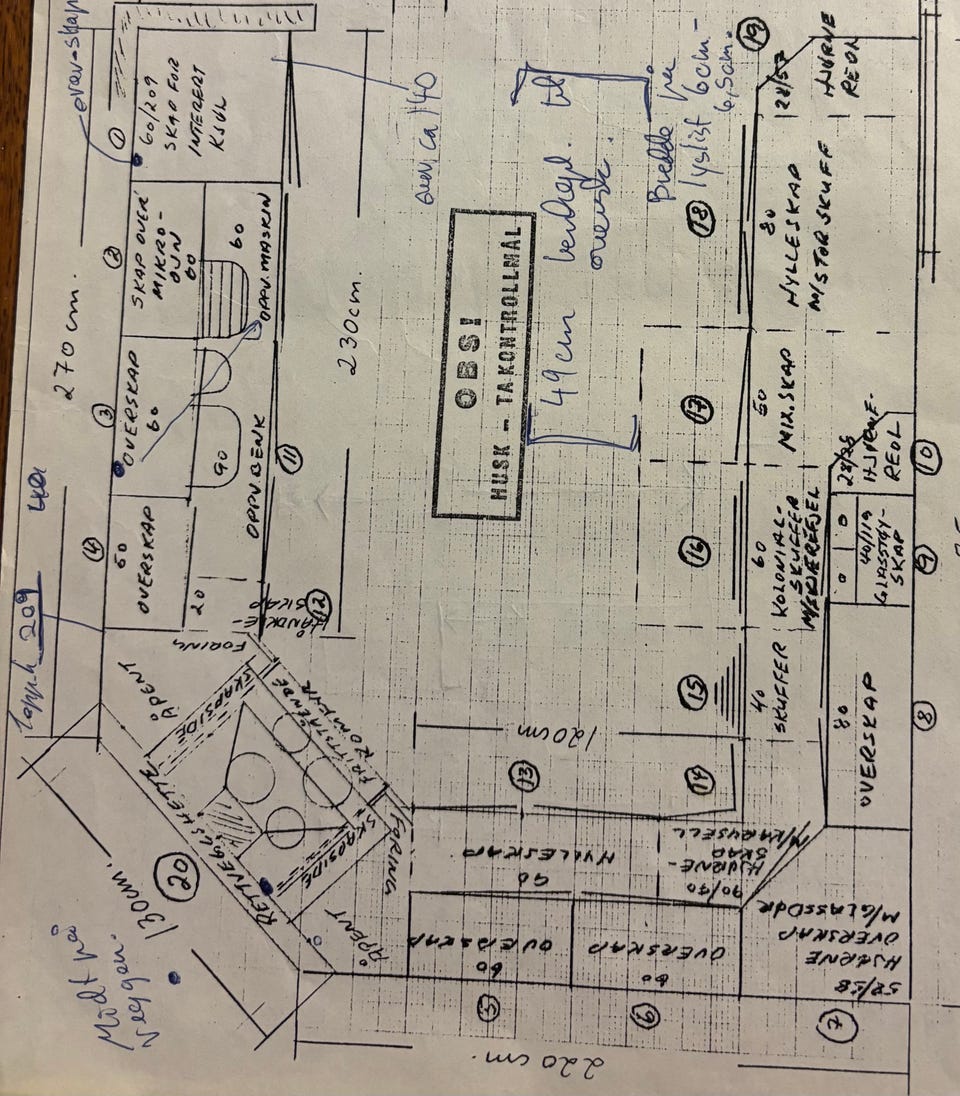 270 cm.
①
60/209
SKAP FOR
INTEGRERT
KJØL
②
SKAP OVER
MIKRO-
OVN
60
60
OPPV.MASKIN
③
OVERSKAP
60
90
OPPV.BENK
⑪
④
50
OVERSKAP
20
HÅNDKLE-
SKAP
⑫
230cm.
ca 140
OBS!
HUSK - TA KONTROLLMÅL
49 cm benkepl. til
oversk.
Bredde på
lyslist 6cm-
6,5cm.
209
FORING
ÅPENT
SKAPSIDE
FRITTSTÅENDE
KOMFYR
RETTVEGGSHETTE
SKAPSIDE
FORING
ÅPENT
⑳
130cm.
Midt på
veggen.
120cm
⑬
90
HYLLESKAP
⑭
90/90
HJØRNE-
SKAP
M/KARUSELL
⑤
60
OVERSKAP
⑥
60
OVERSKAP
⑦
58/58
HJØRNE
OVERSKAP
M/GLASSDØR
220 cm.
⑮
40
SKUFFER
⑯
60
KOLONIAL-
SKUFFER
M/SKJÆREFJEL
⑰
50
MIX.SKAP
⑱
80
HYLLESKAP
M/STOR SKUFF
⑲
28/57
HJØRNE
REOL
⑧
80
OVERSKAP
⑨
40/119
GLASSTØY-
SKAP
⑩
HJØRNE-
REOL